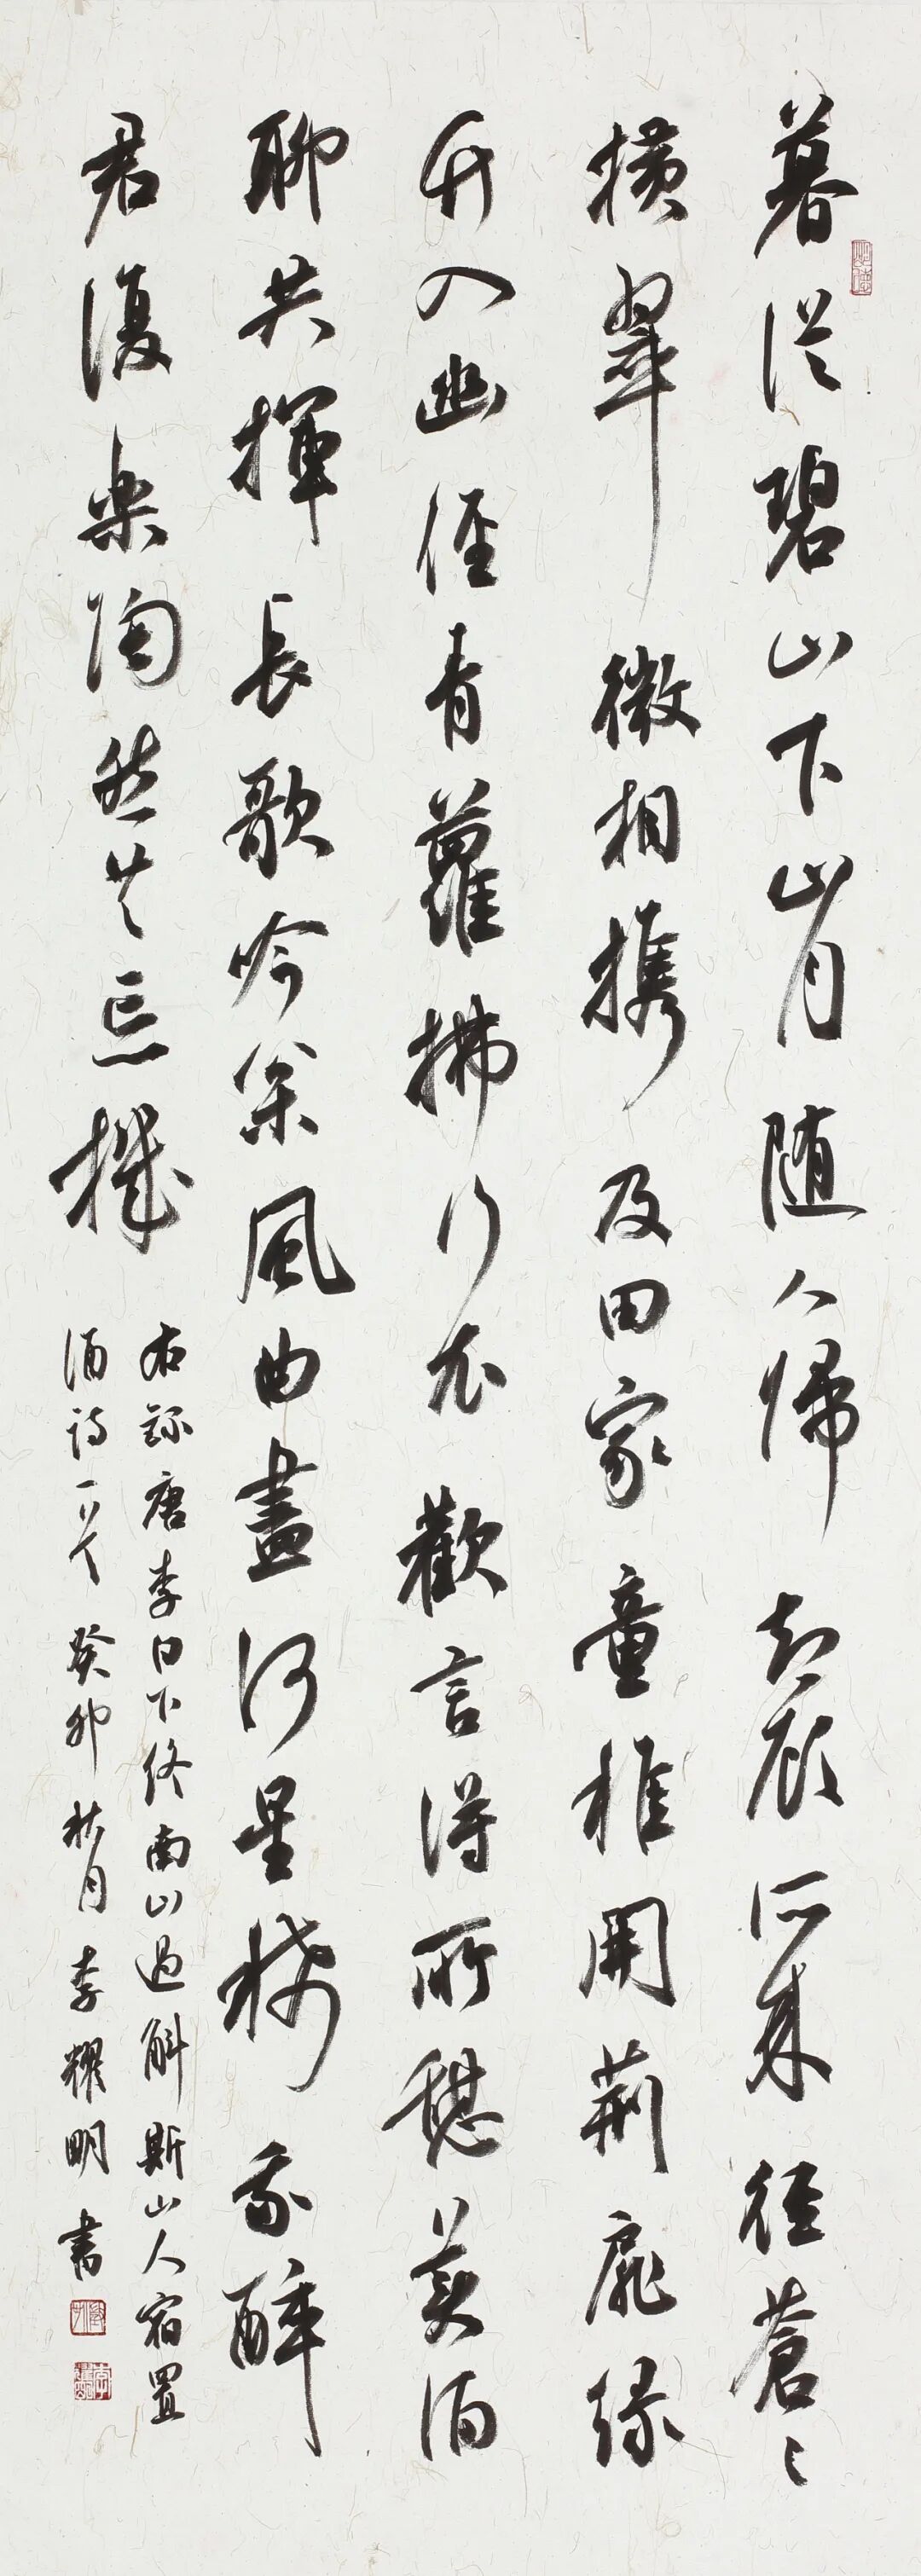 暮從碧山下山月随人歸却顧所来徑蒼々
横翠微相携及田家童稚開荆扉緑
竹入幽徑青蘿拂行衣歡言得所憩美酒
聊共揮長歌吟枩風曲盡河星稀我醉
君復樂陶然共忘機
右録唐李白下終南山過斛斯山人宿置
酒詩一首 癸卯秋月 李耀明書